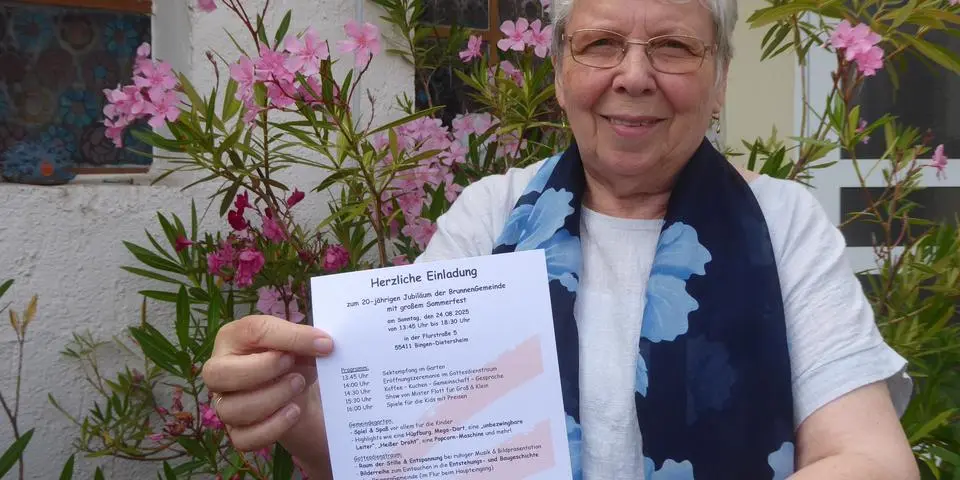 Herzliche Einladung
zum 20-jährigen Jubiläum der BrunnenGemeinde
mit großem Sommerfest
am Sonntag, den 24.08.2025
von 13:45 Uhr bis 18:30 Uhr
in der Flurstraße 5
55411 Bingen-Dietersheim
Programm:
13:45 Uhr Sektempfang im Garten
14:00 Uhr Eröffnungszeremonie im Gottesdienstraum
14:30 Uhr Kaffee - Kuchen - Gemeinschaft - Gespräche
15:30 Uhr Show von Mister Flott für Groß & Klein
16:00 Uhr Spiele für die Kids mit Preisen
Gemeindegarten:
- Spiel & Spaß vor allem für die Kinder
- Highlights wie eine Hüpfburg, Mega-Dart, eine „unbezwingbare
Leiter", „Heißer Draht", eine Popcorn-Maschine und mehr!
Gottesdienstraum:
- Raum der Stille & Entspannung bei ruhiger Musik & Bildpräsentation
- Bilderreihe zum Eintauchen in die Entstehungs- und Baugeschichte
BrunnenGemeinde (im Flur beim Haupteingang)